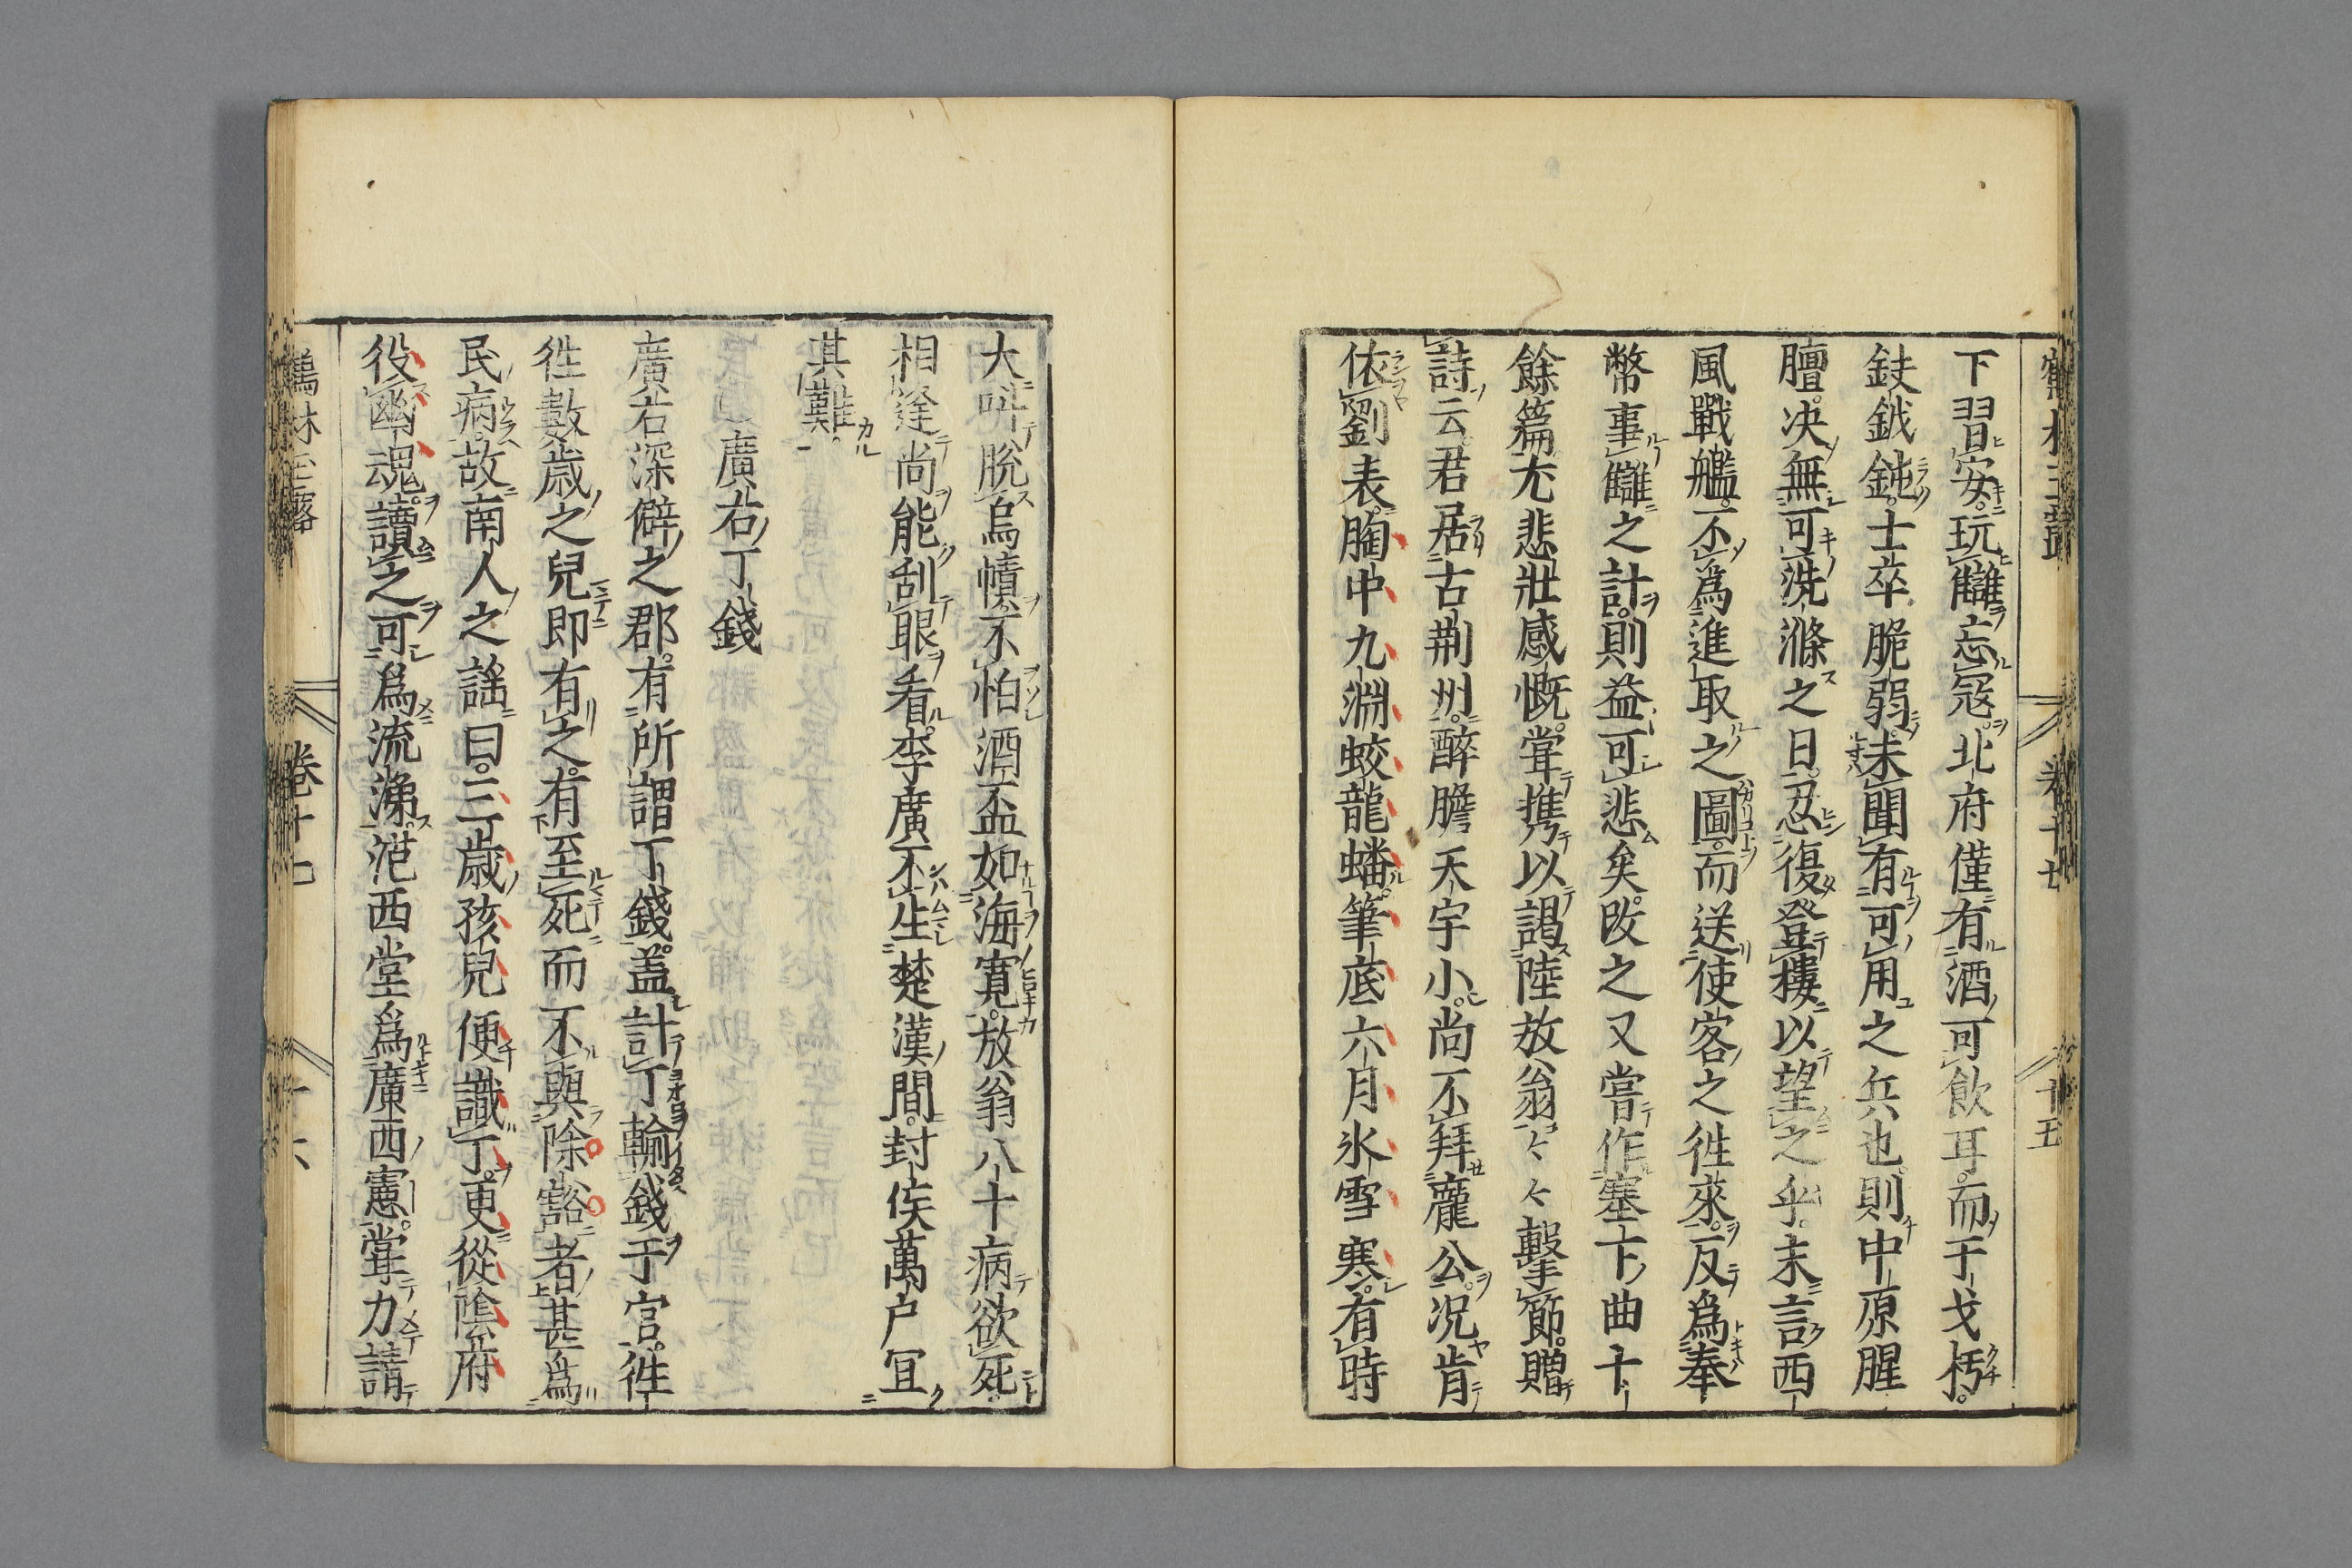 鶴林玉露 卷十七 十五
下習安玩讎忘冦北府僅有酒可飲耳而于戈朽
鈇鉞鈍士卒脆弱未聞有可用之兵也則中原腥
膻决無可洗滌之日忍復登樓以望之乎末言西
風戰艦不爲進取之圖而送使客之徃來反爲奉
幣事讎之計則益可悲矣改之又嘗作塞下曲十
餘篇尤悲壯感慨甞携以謁陸放翁〻〻擊節贈
詩云君居古荆州醉膽天宇小尚不拜龐公况肯
依劉表胸中九淵蛟龍蟠筆底六月氷雪寒有時
大呌脫烏幘不怕酒盃如海寛放翁八十病欲死
相逢尚能刮眼看李廣不生楚漢間封侯萬户冝
其難
廣右丁錢
廣右深僻之郡有所謂丁錢盖計丁輸錢于官徃
徃數歳之兒即有之有至死而不與除豁者甚爲
民病故南人之謡曰三歳孩兒便識丁更從陰府
役幽魂讀之可爲流涕范西堂爲廣西憲甞力請
鶴林玉露 卷十七 十六